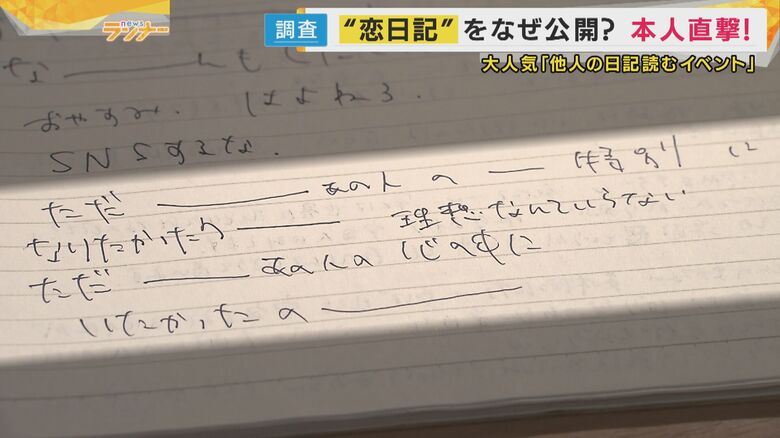 news
ランナー
調査 “恋日記”をなぜ公開? 本人直撃!
大人気「他人の日記読むイベント」
おやすみ. はよねろ.
SNSするな.
ただ ―――― あの人の ― 特別 に
なりたかった ――― 理想なんていらない
ただ ――― あの人の 心の中に
いたかったの ――――――